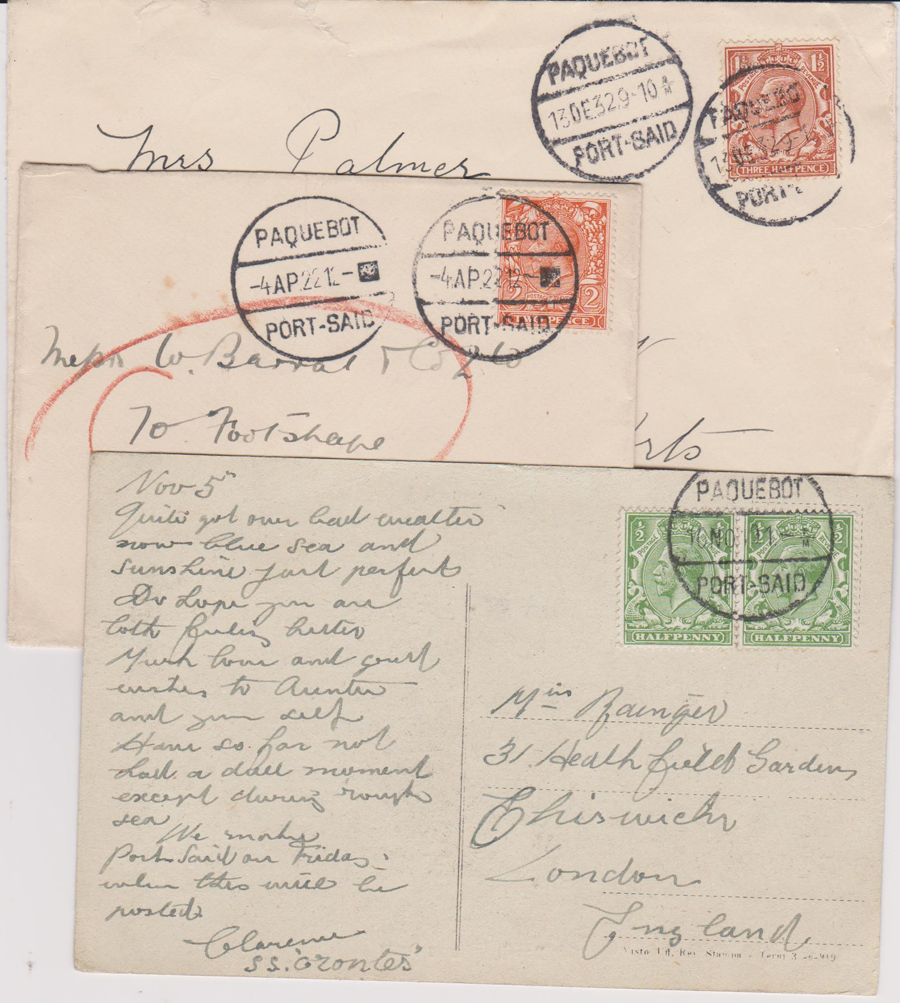 PAQUEBOT
13DE32.9-10
PORT-SAID
1½ 1½
THREE HALFPENCE
PAQUEBO
13DE32.9-
PORT-
Mrs Palmer
PAQUEBOT
-4AP.22 12-
PORT-SAID
PAQUEBOT
-4AP.22 12-
PORT-SAID
2 2
PENCE
Messrs W. Barrat & Co Ltd
To Footshape
rts
Nov 5th
Quite got over bad weather
now blue sea and
sunshine just perfect
Do hope you are
both feeling better
Much love and good
wishes to Auntie
and your self
Have so far not
had a dull moment
except during rough
sea
We make
Port Said on Friday
when this will be
posted
Clarence
S.S. "Orontes"
PAQUEBOT
10NO
PORT-SAID
½ ½
HALFPENNY
½ ½
HALFPENNY
Miss Rainger
31. Heathfield Gardens
Chiswick
London
England
Visto Uff. Rev. Stampa - Terni 3-6-919